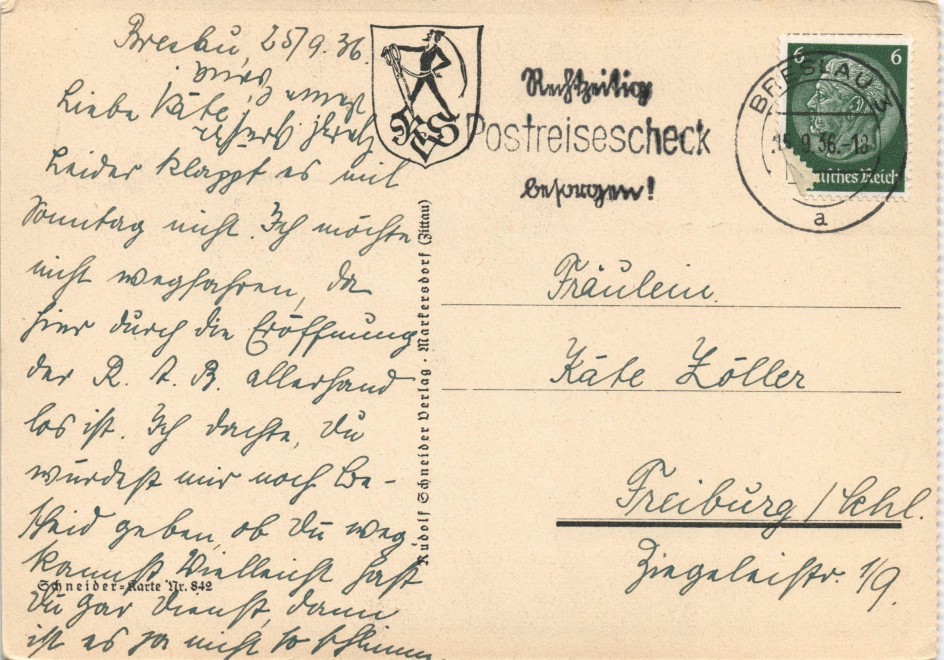 Breslau, 25/9.36.
Liebe Käte,
Leider klappt es mit
Sonntag nicht. Ich möchte
nicht wegfahren, da
hier durch die Eröffnung
der R. A. B. allerhand
los ist. Ich dachte, Du
würdest mir noch Be-
scheid geben, ob Du weg
kannst. Vielleicht hast
Du gar Dienst, dann
ist es ja nicht so schlimm.
Schneider-Karte Nr. 842
Rudolf Schneider Verlag · Markersdorf (Zittau)
RSV
Rechtzeitig
Postreisescheck
besorgen!
BRESLAU 3
9.36.-18
a
6 6
Deutsches Reich
Fräulein
Käte Zöller
Freiburg/Schl.
Ziegeleistr. 1/9.